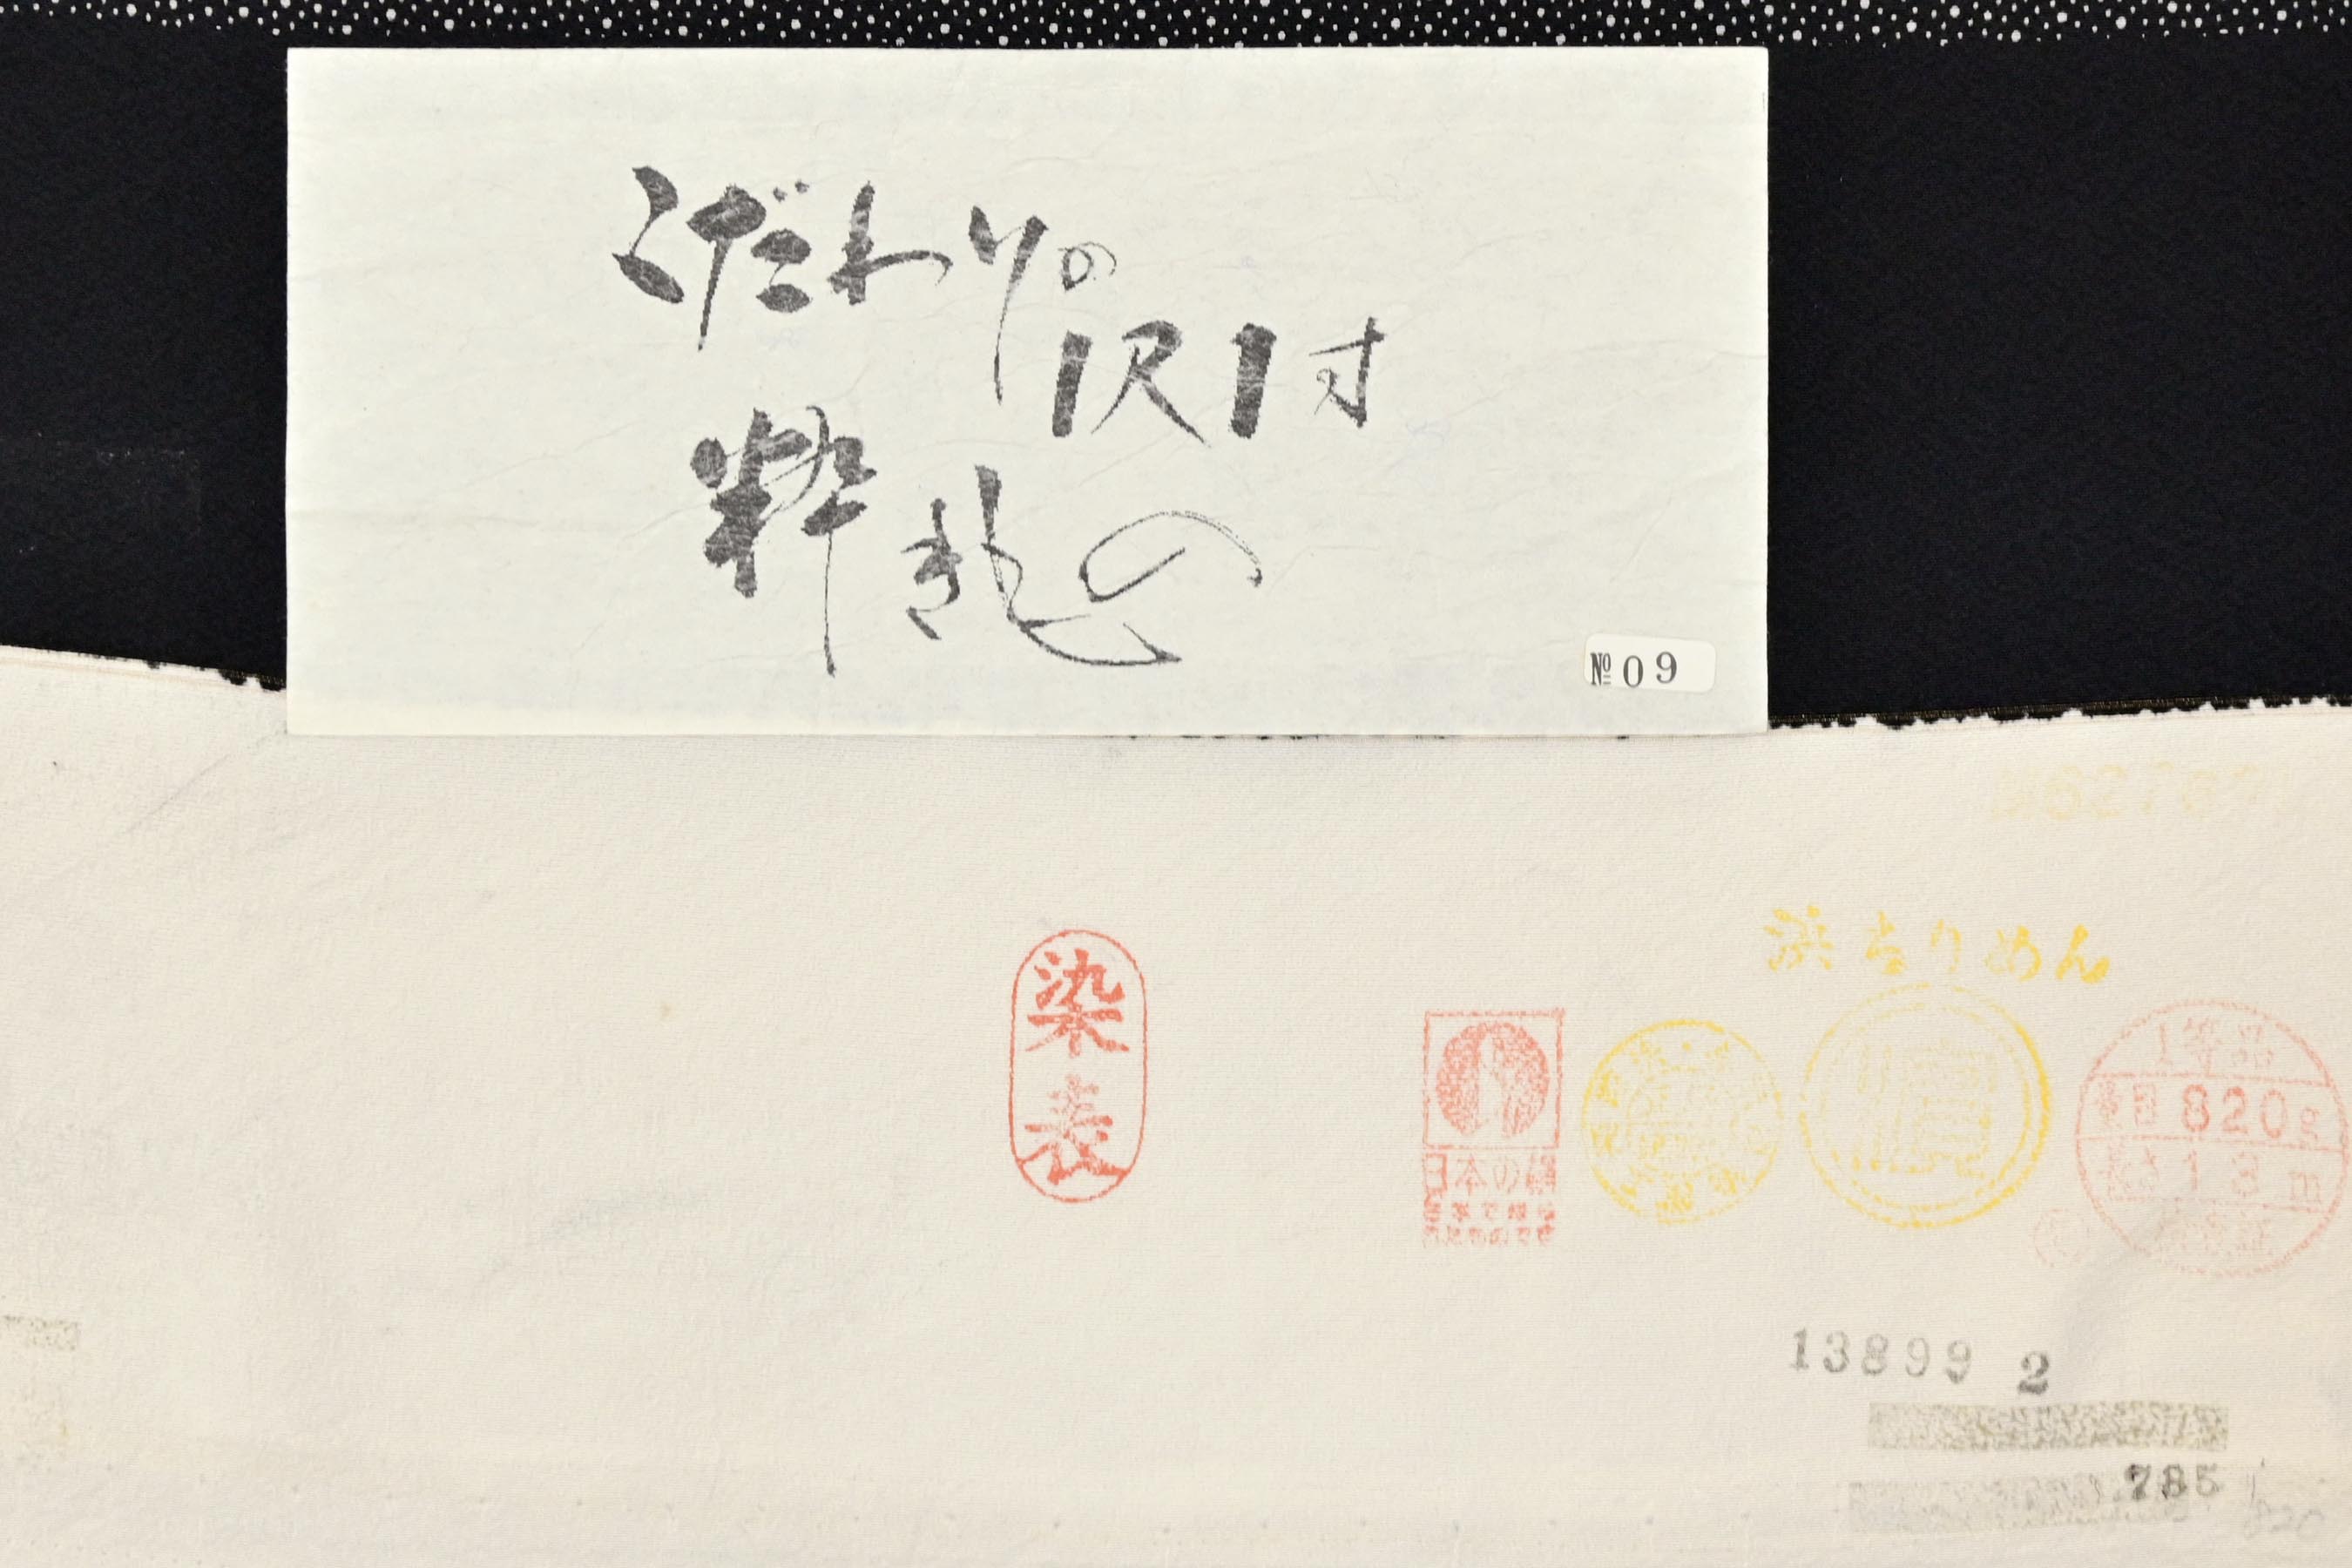 こだわりの
1尺1寸
粋きもの
№09
染表
浜ちりめん
日本の絹
1等品
量目 820g
長さ 13m
13899 2
785
820